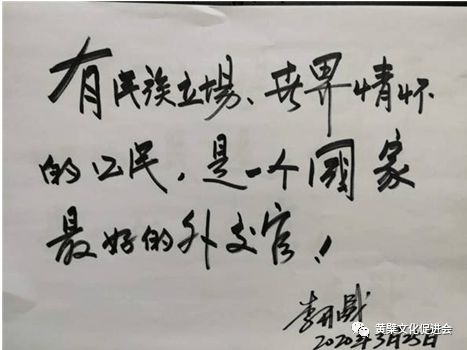 有民族立場、世界情怀
的公民，是一个國家
最好的外交官！
李
2020年3月25日
黄檗文化促进会